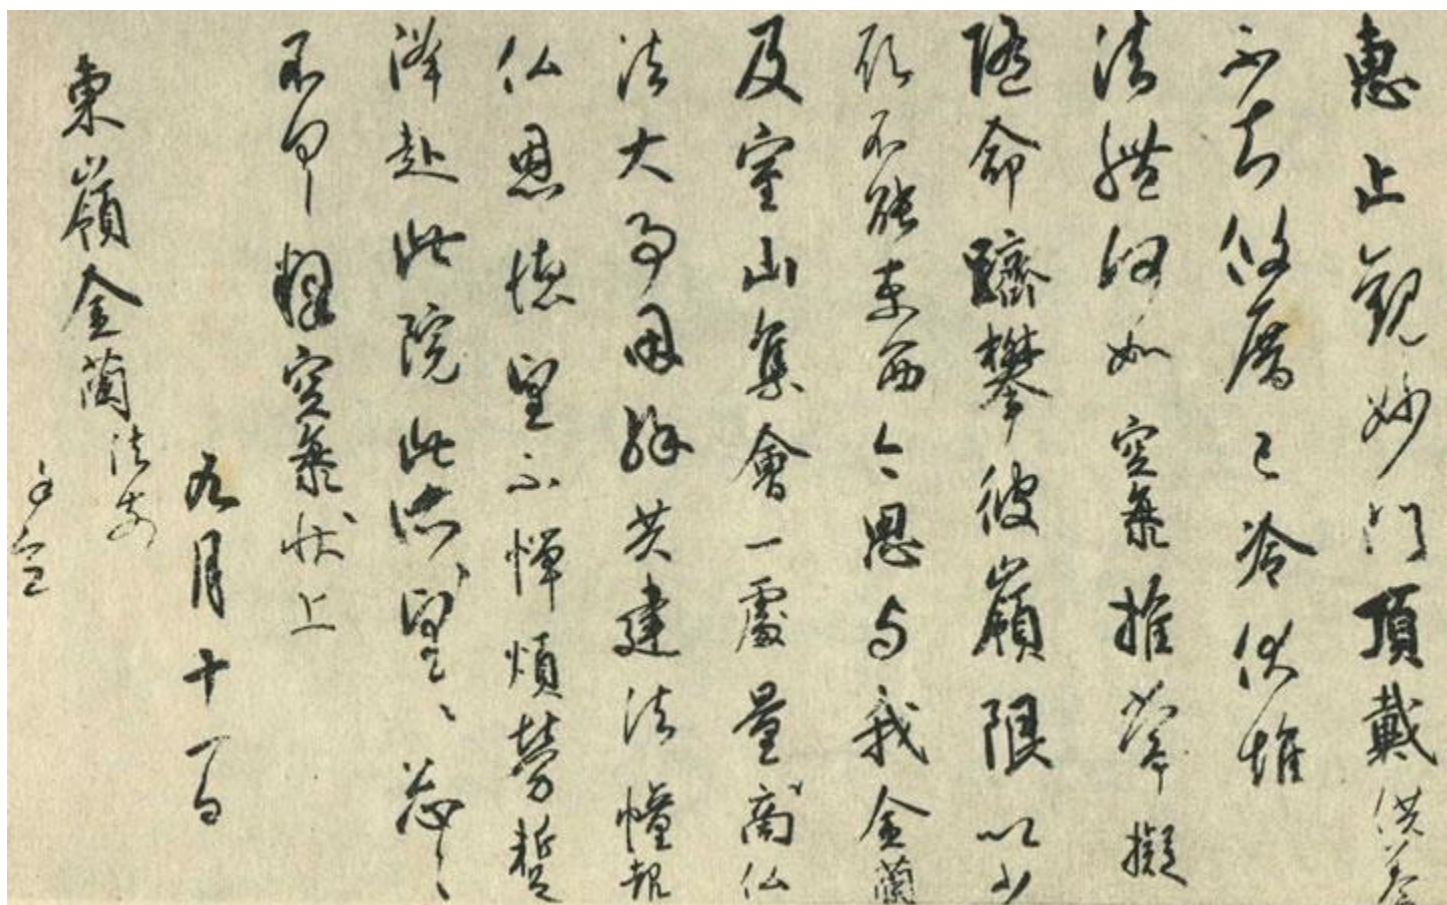 惠止觀妙門頂戴供養
不知攸厝已冷伏惟
法體何如空海推常擬
隨命躋攀彼嶺限以少
願不能東西今思与我金蘭
及室山集會一處量商仏
法大事因緣共建法幢報
仏恩德望不憚煩勞蹔
降赴此院此所望〻忩〻
不具釋空海狀上
九月十一日
東嶺金蘭法前
謹空